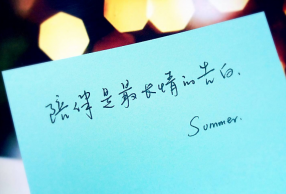 陪伴是最长情的告白.
Summer.